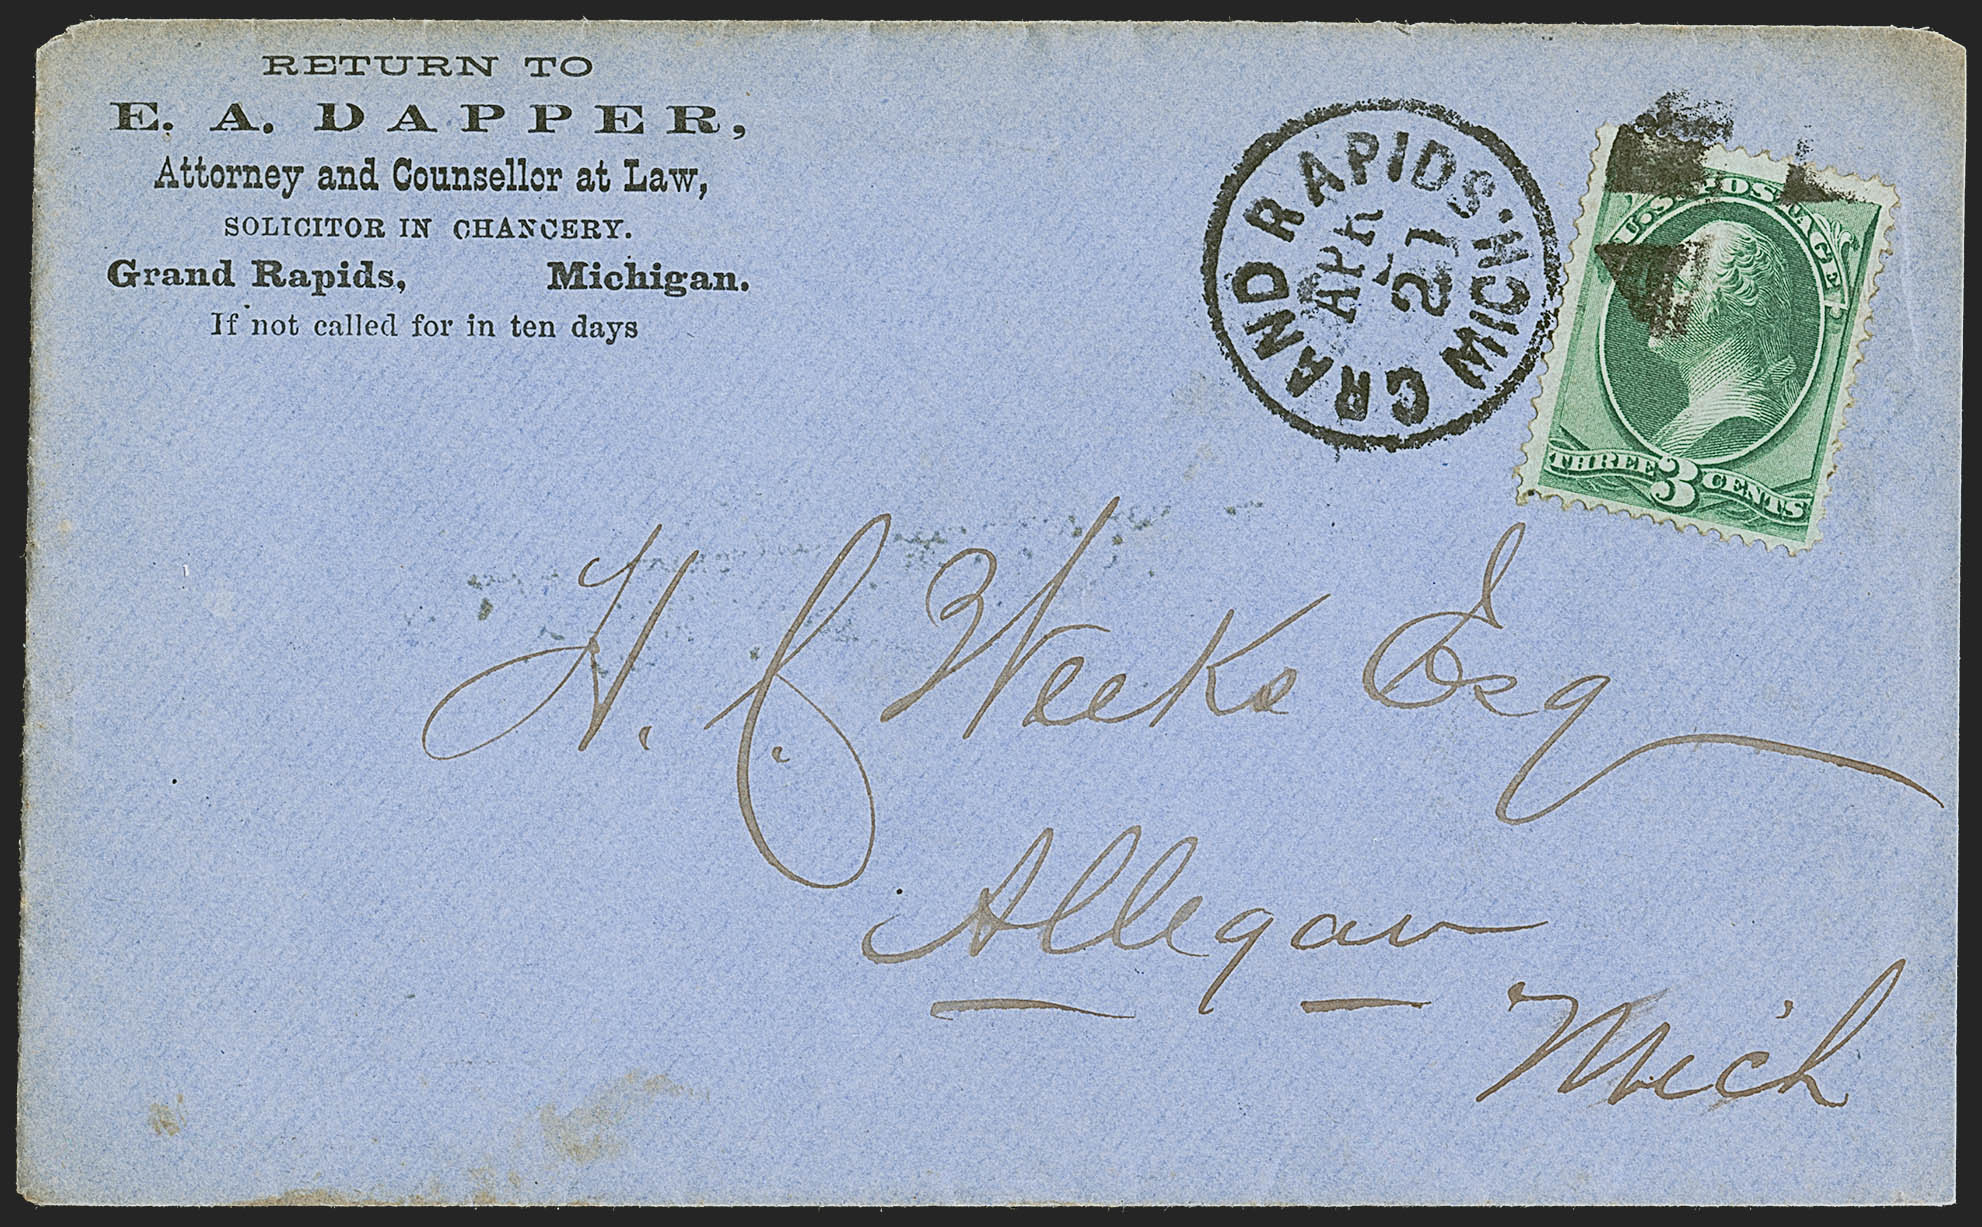 RETURN TO
E. A. DAPPER,
Attorney and Counsellor at Law,
SOLICITOR IN CHANCERY.
Grand Rapids, Michigan.
If not called for in ten days
GRAND RAPIDS. MICH.
APR
21
U.S. POSTAGE
THREE 3 CENTS
H. C. Weeks Esq
Allegan
Mich